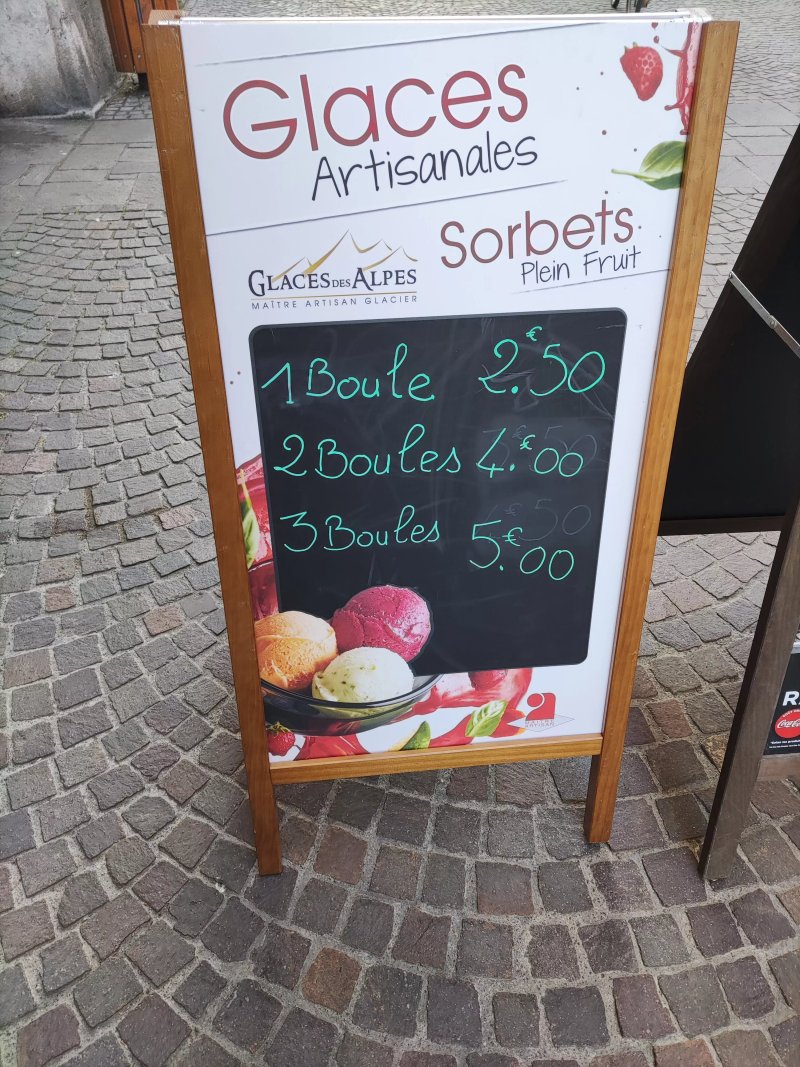 Glaces
Artisanales
GLACES DES ALPES
MAÎTRE ARTISAN GLACIER
Sorbets
Plein Fruit
1 Boule 2.€50
2 Boules 4.€00
3 Boules 5.€00
Coca-Cola